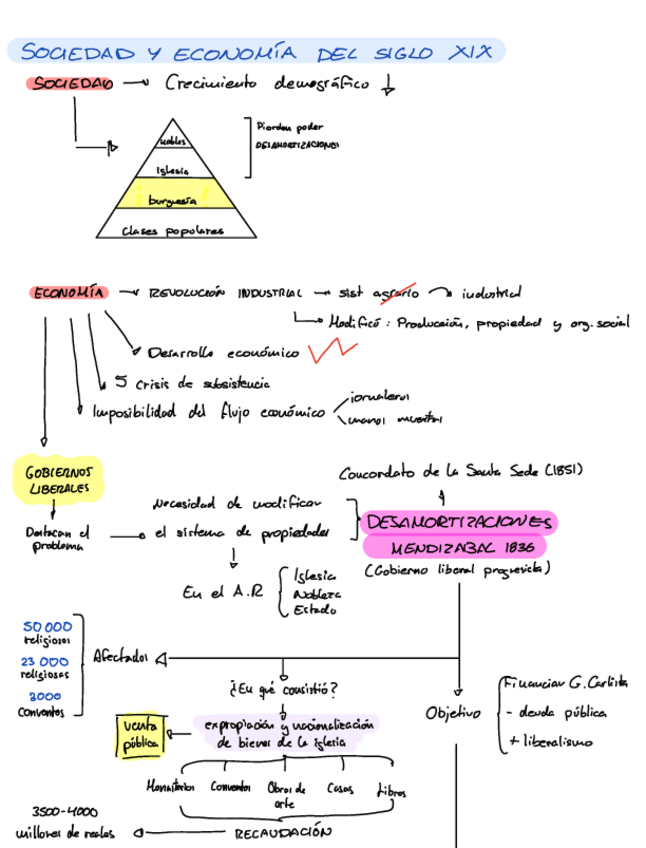 SOCIEDAD Y ECONOMÍA DEL SIGLO XIX
SOCIEDAD → Crecimiento demográfico ↓
nobles
iglesia
burguesía
Clases populares
Pierden poder
DESAMORTIZACIONES
ECONOMÍA → REVOLUCIÓN INDUSTRIAL → sist agrario → industrial
Modificó: Producción, propiedad y org. social
Desarrollo económico
5 crisis de subsistencia
Imposibilidad del flujo económico
jornaleros
manos muertas
GOBIERNOS
LIBERALES
Destacan el
problema
Necesidad de modificar
el sistema de propiedades
En el A.R
Iglesia
Nobleza
Estado
Concordato de la Santa Sede (1851)
DESAMORTIZACIONES
MENDIZABAL 1836
(Gobierno liberal progresista)
50 000
religiosos
23 000
religiosas
3000
Conventos
Afectados
¿En qué consistió?
expropiación y nacionalización
de bienes de la iglesia
venta
pública
Monasterios Conventos Obras de arte Casas Libros
RECAUDACIÓN
3500-4000
millones de reales
Objetivo
Financiar G. Carlista
- deuda pública
+ liberalismo